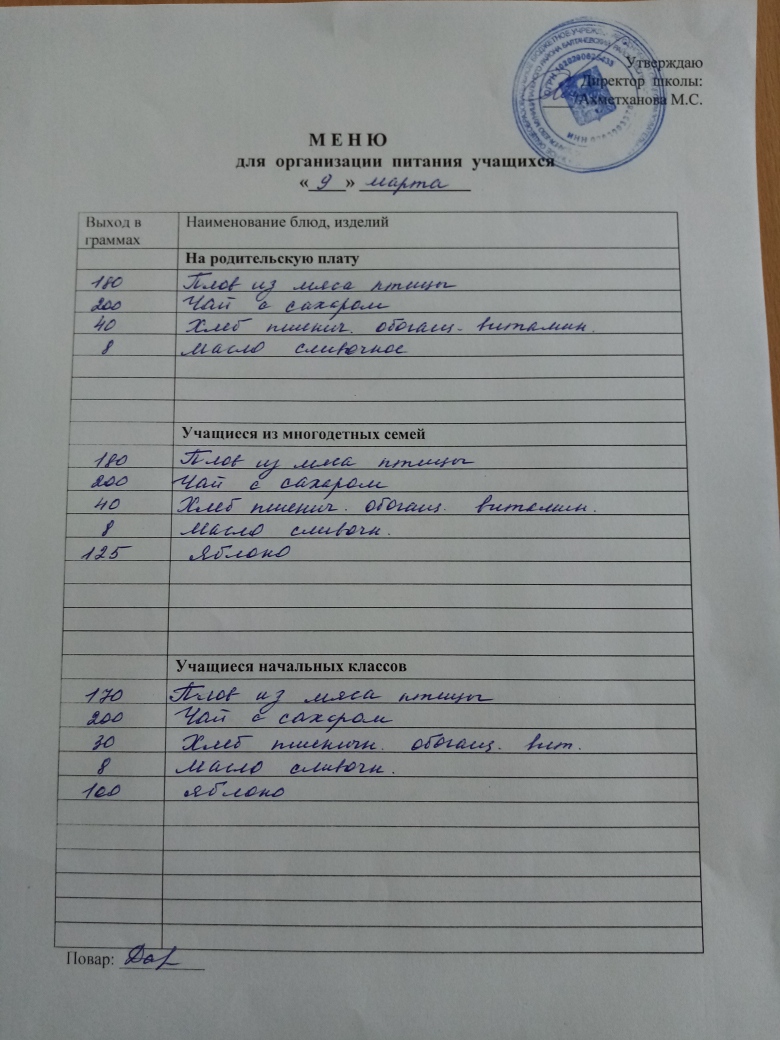 Утверждаю
Директор школы:
Ахметханова М.С.
МЕНЮ
для организации питания учащихся
« 9 » марта
Выход в граммах Наименование блюд, изделий
На родительскую плату
180 Плов из мяса птицы
200 Чай с сахаром
40 Хлеб пшенич. обогащ. витамин.
8 Масло сливочное
Учащиеся из многодетных семей
180 Плов из мяса птицы
200 Чай с сахаром
40 Хлеб пшенич. обогащ. витамин.
8 Масло сливочн.
125 Яблоко
Учащиеся начальных классов
170 Плов из мяса птицы
200 Чай с сахаром
30 Хлеб пшеничн. обогащ. вит.
8 Масло сливочн.
100 Яблоко
Повар: